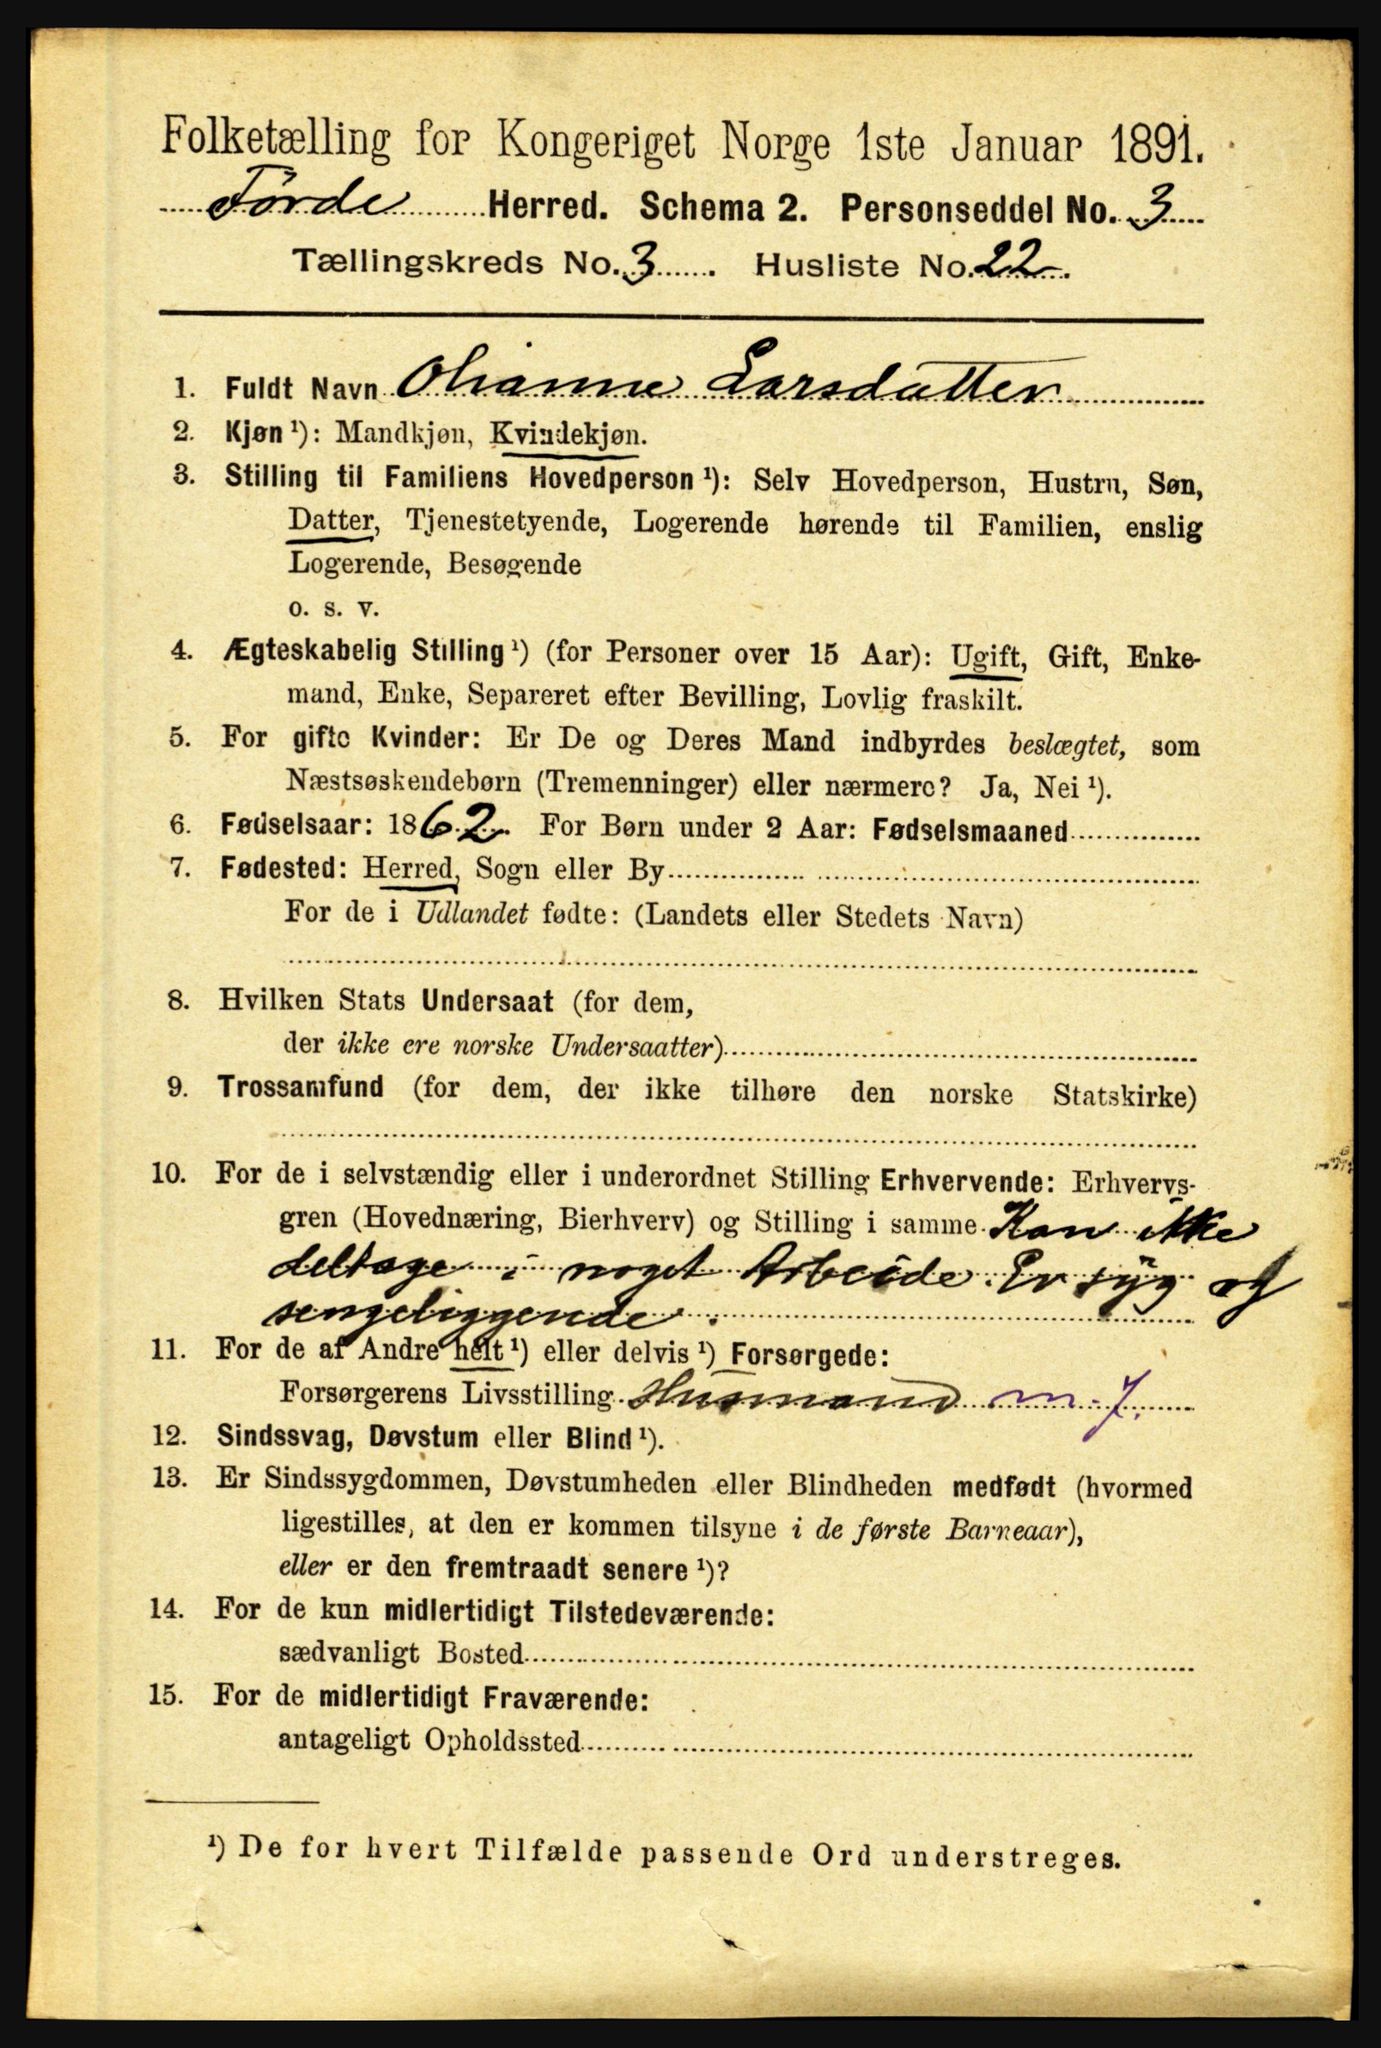 Folketælling for Kongeriget Norge 1ste Januar 1891.
Førde Herred. Schema 2. Personseddel No. 3
Tællingskreds No. 3. Husliste No. 22.
1. Fuldt Navn Olianne Larsdatter
2. Kjøn ¹): Mandkjøn, Kvindekjøn.
3. Stilling til Familiens Hovedperson ¹): Selv Hovedperson, Hustru, Søn,
Datter, Tjenestetyende, Logerende hørende til Familien, enslig
Logerende, Besøgende
o. s. v.
4. Ægteskabelig Stilling ¹) (for Personer over 15 Aar): Ugift, Gift, Enke-
mand, Enke, Separeret efter Bevilling, Lovlig fraskilt.
5. For gifte Kvinder: Er De og Deres Mand indbyrdes beslægtet, som
Næstsøskendebørn (Tremenninger) eller nærmere? Ja, Nei ¹).
6. Fødselsaar: 1862. For Børn under 2 Aar: Fødselsmaaned
7. Fødested: Herred, Sogn eller By
For de i Udlandet fødte: (Landets eller Stedets Navn)
8. Hvilken Stats Undersaat (for dem,
der ikke ere norske Undersaatter)
9. Trossamfund (for dem, der ikke tilhøre den norske Statskirke)
10. For de i selvstændig eller i underordnet Stilling Erhvervende: Erhvervs-
gren (Hovednæring, Bierhverv) og Stilling i samme Kan ikke
deltage i noget Arbeide. Er syg og
sengeliggende.
11. For de af Andre helt ¹) eller delvis ¹) Forsørgede:
Forsørgerens Livsstilling Husmand m. J.
12. Sindssvag, Døvstum eller Blind ¹).
13. Er Sindssygdommen, Døvstumheden eller Blindheden medfødt (hvormed
ligestilles, at den er kommen tilsyne i de første Barneaar),
eller er den fremtraadt senere ¹)?
14. For de kun midlertidigt Tilstedeværende:
sædvanligt Bosted
15. For de midlertidigt Fraværende:
antageligt Opholdssted
¹) De for hvert Tilfælde passende Ord understreges.